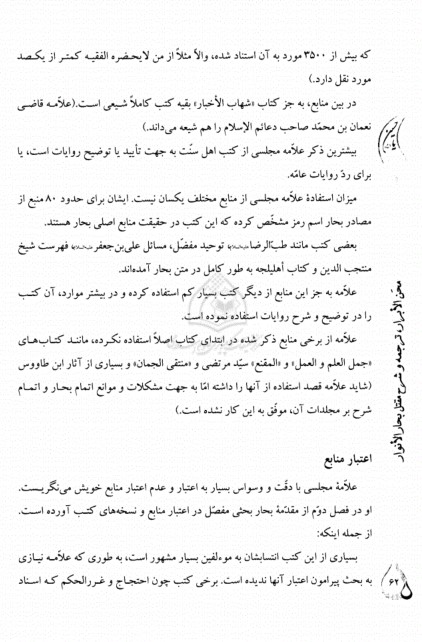 که بیش از ۳۵۰۰ مورد به آن استناد شده، والاّ مثلاً از من لایحضره الفقیه کمتر از یکصد
مورد نقل دارد.)
در بین منابع، به جز کتاب «شهاب الأخبار» بقیه کتب کاملاً شیعی است.(علاّمه قاضی
نعمان بن محمّد صاحب دعائم الإسلام را هم شیعه می‌داند.)
بیشترین ذکر علاّمه مجلسی از کتب اهل سنّت به جهت تأیید یا توضیح روایات است، یا
برای ردّ روایات عامّه.
میزان استفادۀ علاّمه مجلسی از منابع مختلف یکسان نیست. ایشان برای حدود ۸۰ منبع از
مصادر بحار اسم رمز مشخّص کرده که این کتب در حقیقت منابع اصلی بحار هستند.
بعضی کتب مانند طبّ‌الرضا علیه‌السلام توحید مفضّل، مسائل علی‌بن‌جعفر علیه‌السلام فهرست شیخ
منتجب الدین و کتاب أهلیلجه به طور کامل در متن بحار آمده‌اند.
علاّمه به جز این منابع از دیگر کتب بسیار کم استفاده کرده و در بیشتر موارد، آن کتب
را در توضیح و شرح روایات استفاده نموده است.
علاّمه از برخی منابع ذکر شده در ابتدای کتاب اصلاً استفاده نکرده، مانند کتاب‌های
«جمل العلم و العمل» و «المقنع» سیّد مرتضی و «منتقی الجمان» و بسیاری از آثار ابن طاووس
(شاید علاّمه قصد استفاده از آنها را داشته امّا به جهت مشکلات و موانع اتمام بحار و اتمام
شرح بر مجلدات آن، موفّق به این کار نشده است.)
اعتبار منابع
علاّمۀ مجلسی با دقّت و وسواس بسیار به اعتبار و عدم اعتبار منابع خویش می‌نگریست.
او در فصل دوّم از مقدّمۀ بحار بحثی مفصّل در اعتبار منابع و نسخه‌های کتب آورده است.
از جمله اینکه:
بسیاری از این کتب انتسابشان به موءلفین بسیار مشهور است، به طوری که علاّمه نیازی
به بحث پیرامون اعتبار آنها ندیده است. برخی کتب چون احتجاج و غررالحکم که اسناد
محن الأبرار، ترجمه و شرح مقتل بحار الأنوار
۶۲